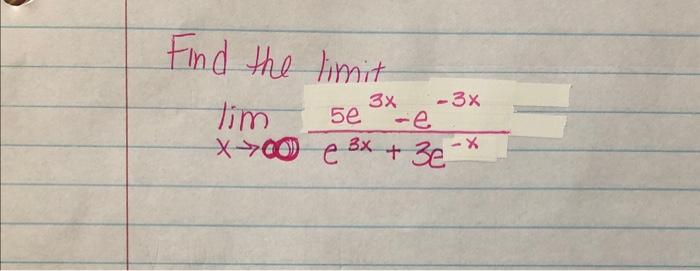 Find the limit
lim 5e^3x - e^-3x
x→∞ e^3x + 3e^-x